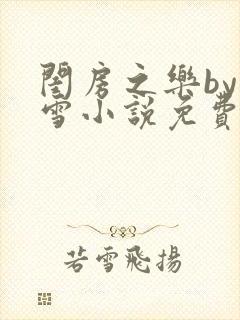 閨房之樂by
雪小說免費
若雪飛揚